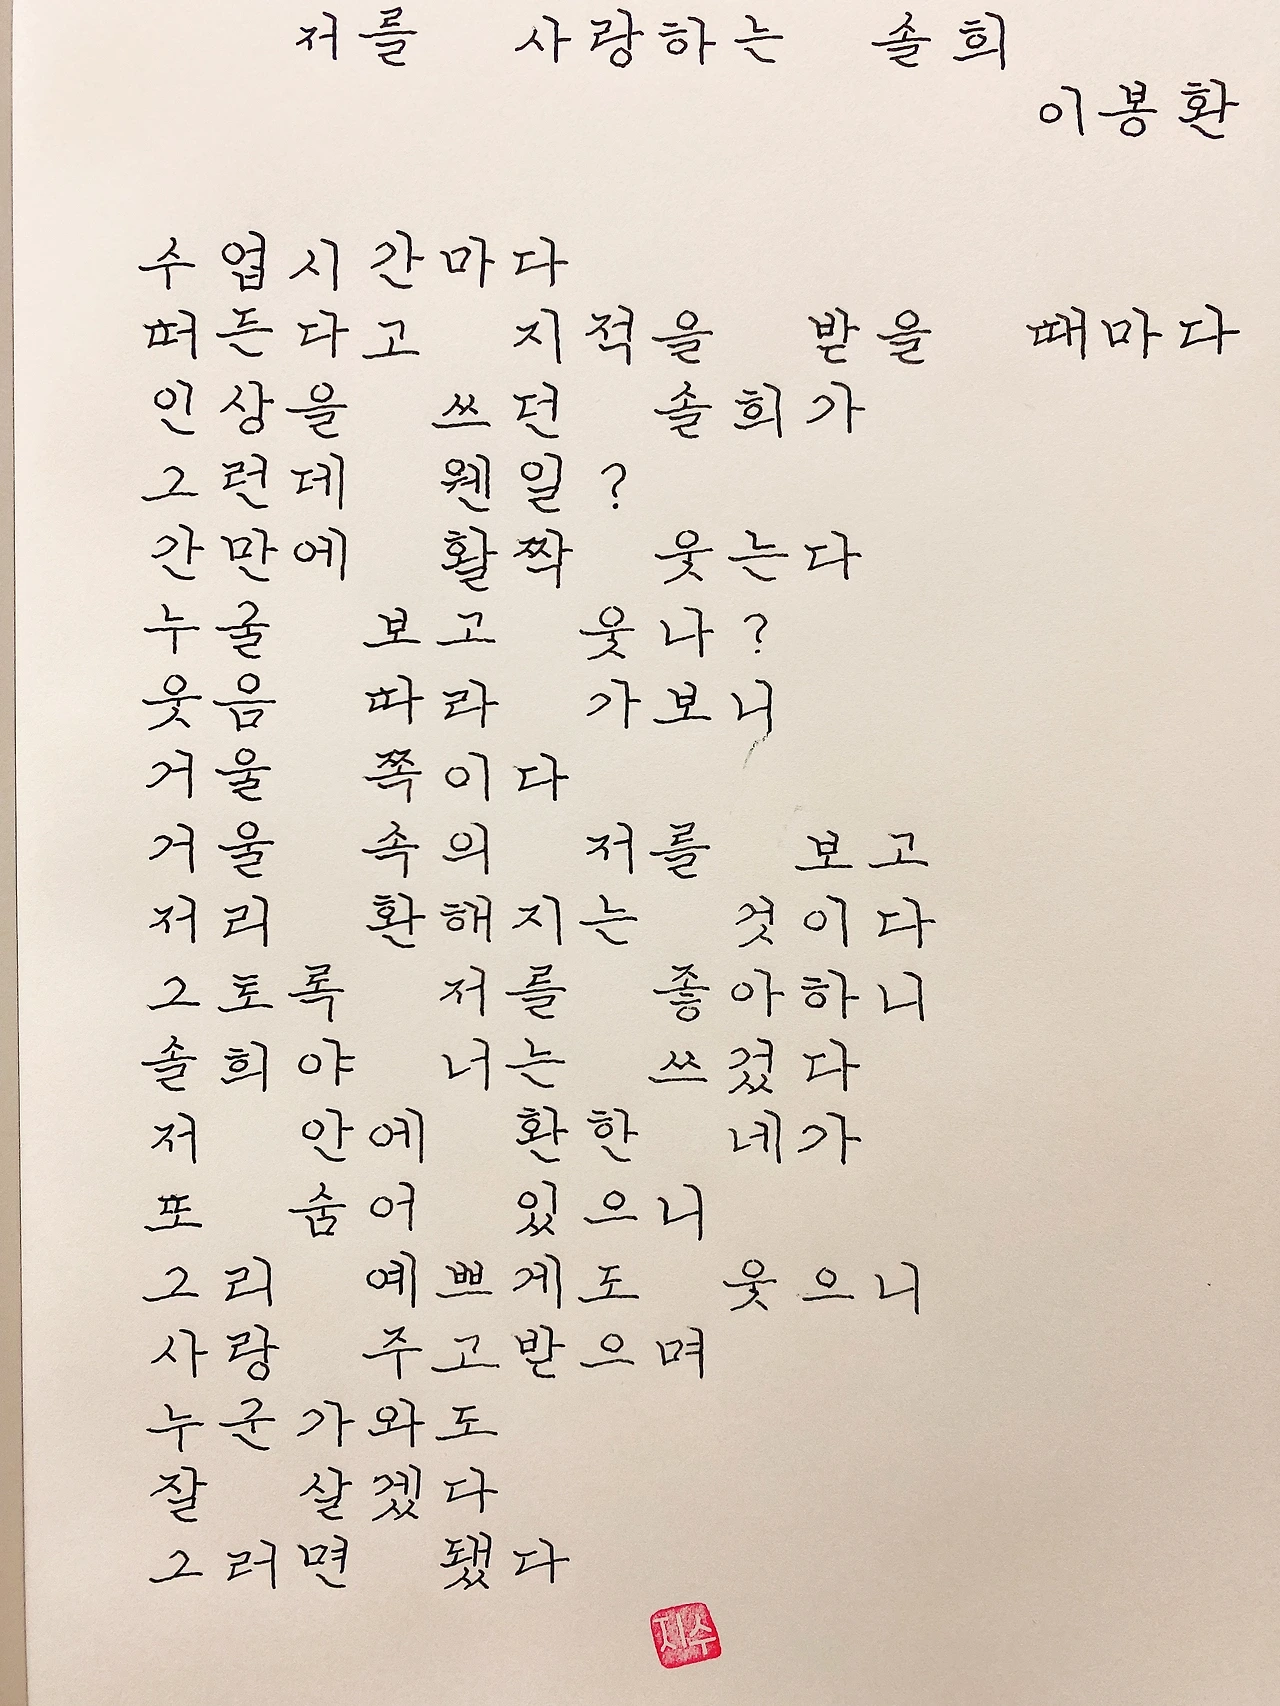 저를 사랑하는 솔희
이봉환
수업시간마다
떠든다고 지적을 받을 때마다
인상을 쓰던 솔희가
그런데 웬일?
간만에 활짝 웃는다
누굴 보고 웃나?
웃음 따라 가보니
거울 쪽이다
거울 속의 저를 보고
저리 환해지는 것이다
그토록 저를 좋아하니
솔희야 너는 쓰겄다
저 안에 환한 네가
또 숨어 있으니
그리 예쁘게도 웃으니
사랑 주고받으며
누군가와도
잘 살겠다
그러면 됐다
지수